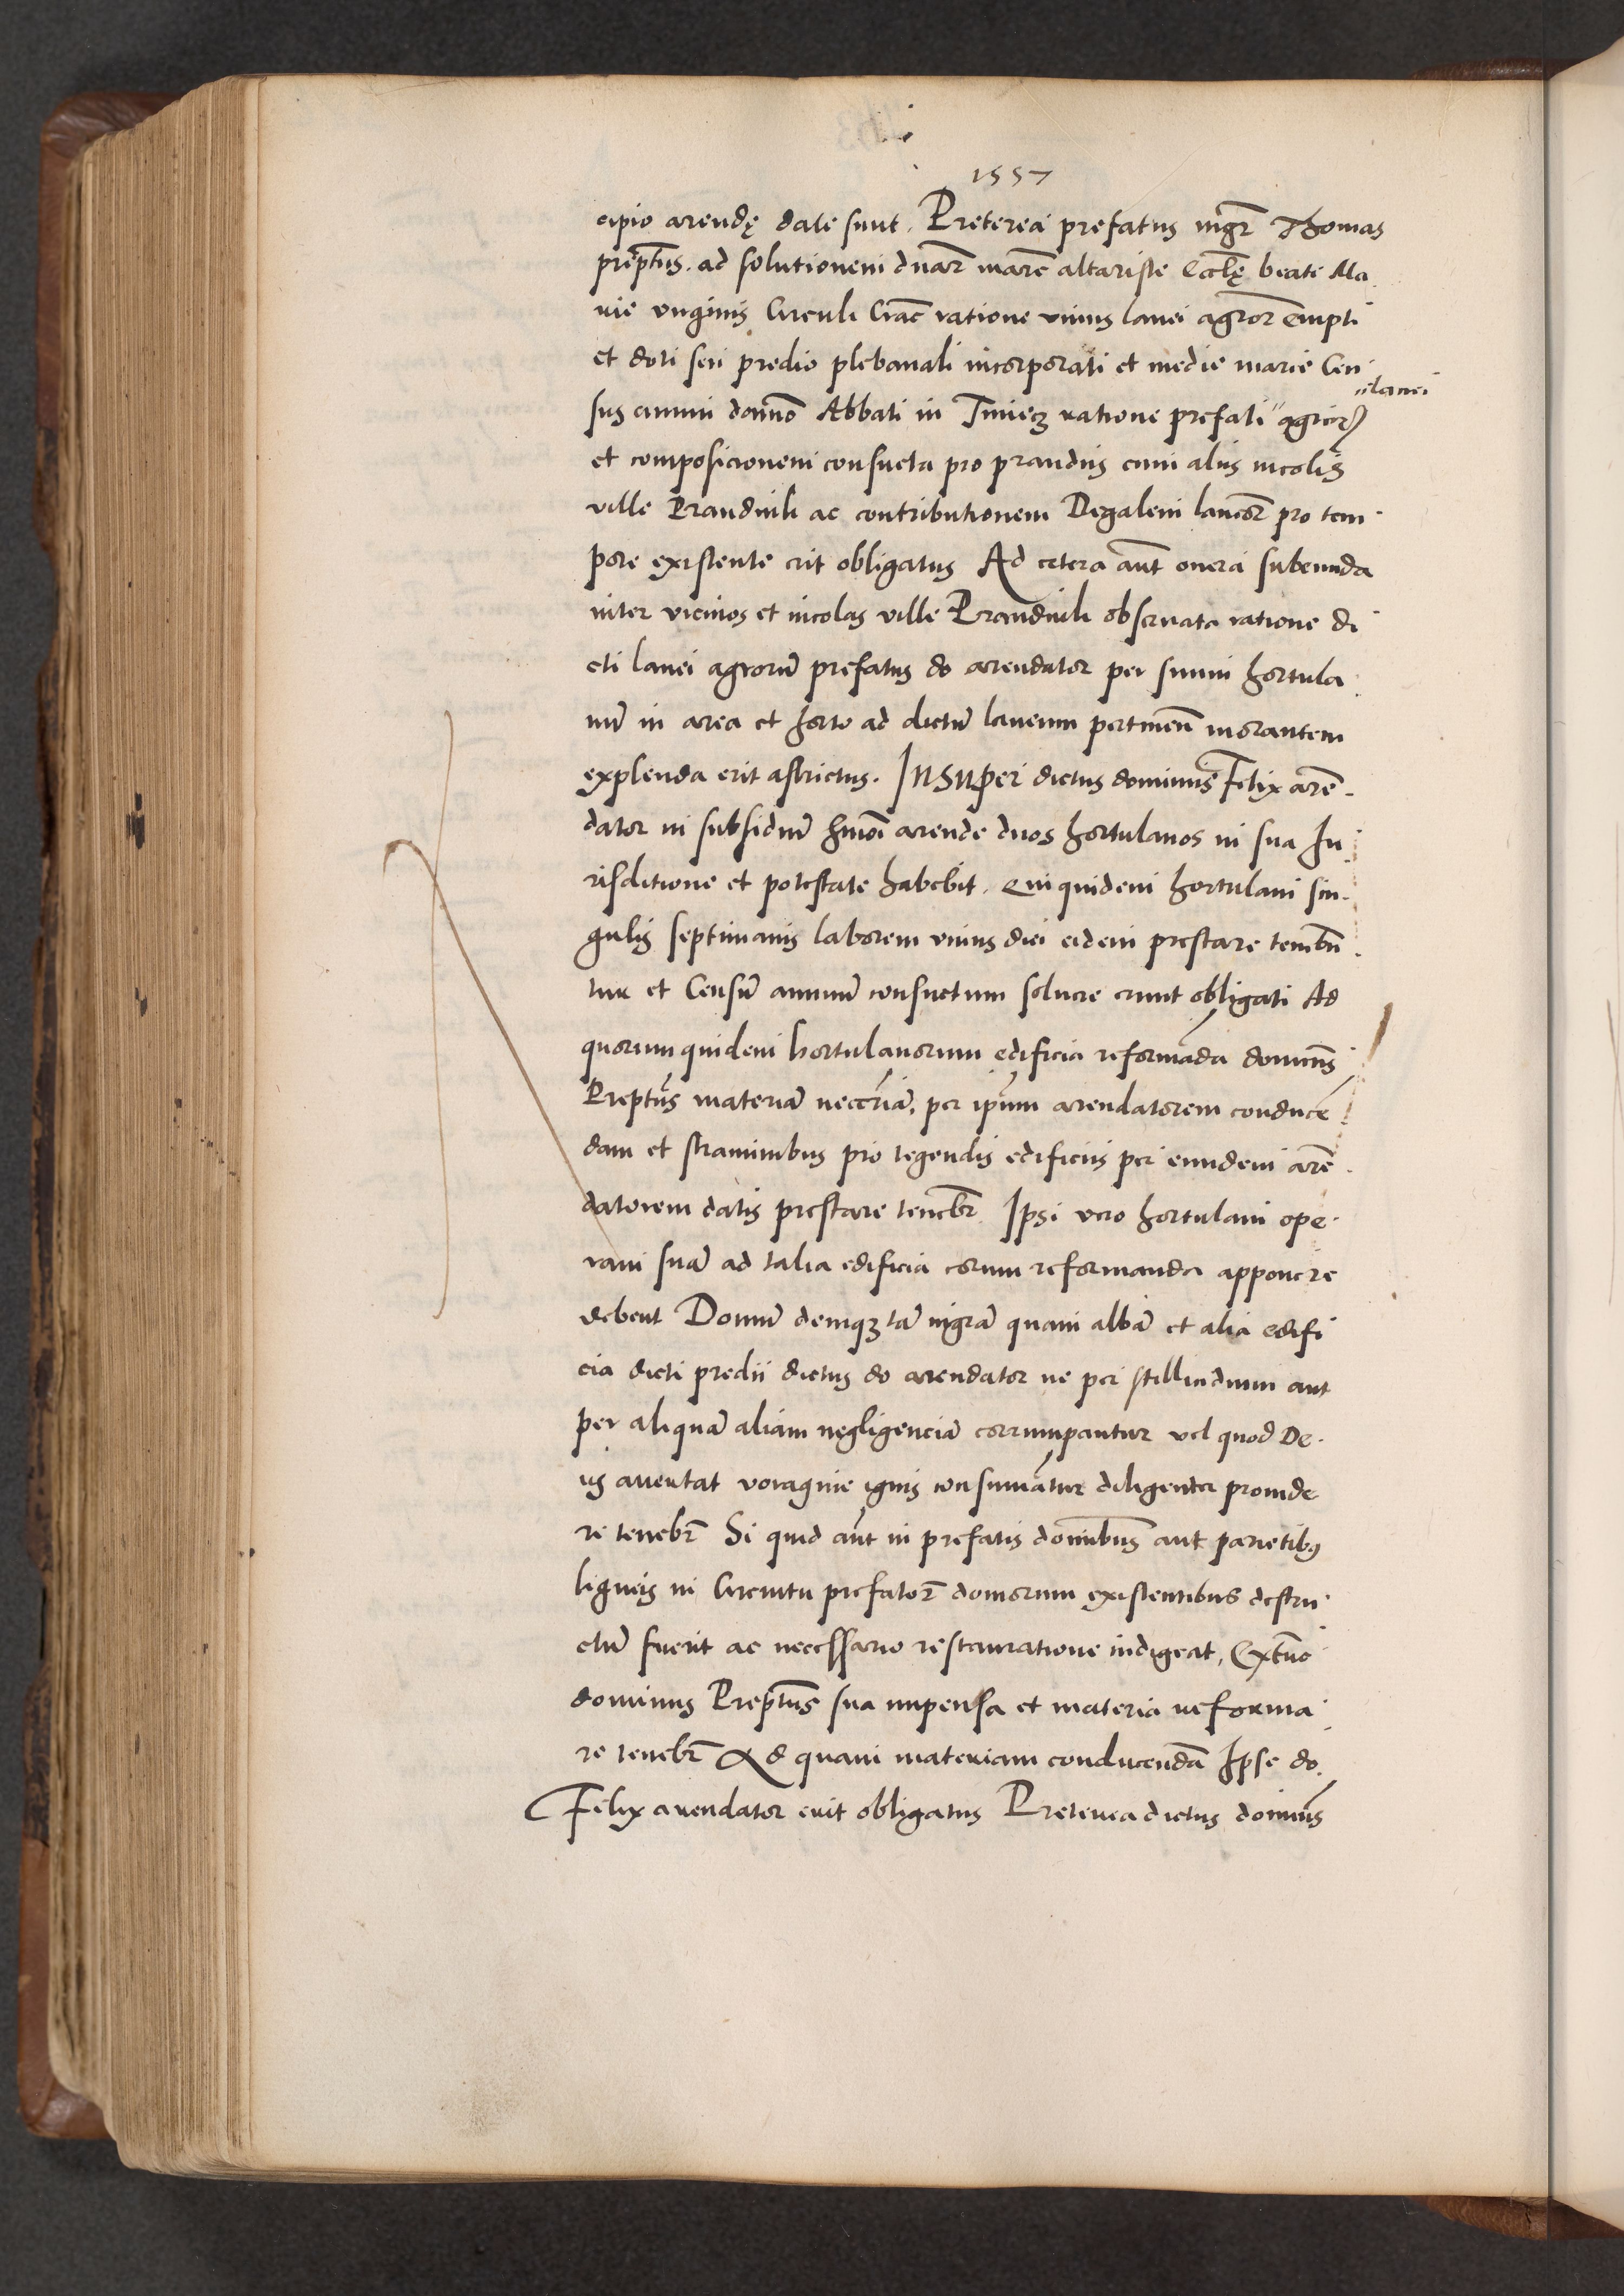 1557
cipio arendę date sunt. Preterea prefatus mgr̄ Thomas
prep̄tus. ad solutionem duar̄ marc̄ altariste Eccl̄ę beate Ma
rie virginis Circuli Crac̄ ratione vnius lanei agror̄ empti
et doti seu predio plebanali incorporati et medie marce Cen
sus annui domn̄o Abbati in Tiniecz ratione prefati "agror̄
"lanei
et composicionem consueta pro prandiis cum aliis incolis
ville Prandnik ac contributionem Degalem laneor̄ pro tem
pore existente erit obligatus Ad cetera aut̄ onera subeunda
inter vicinos et incolas ville Prandnik obseruata ratione di
cti lanei agrorū prefatus do arendator per suum hortula
nū in area et horto ad dictū laneum pertinen̄ morantem
explenda erit astrictus. Insuper dictus dominus Felix arē
dator in subsidiū hmōi arende duos hortulanos in sua Iu
risditione et potestate habebit. Qui quidem hortulani sin
gulis septimanis laborem vnius diei eidem prestare tenebū
tur et Censū annuū consuetum soluere erunt obligati Ad
quorum quidem hortulanorum edificia reformāda domin̄s
Prep̄tus materiā necc̄riā. per ip̄um arendatorem conducē
dam et straminibus pro tegendis edificiis per eundem arē
datorem datis prestare tenebr̄ Ipsi vero hortulani ope
ram suā ad talia edificia eorum reformanda apponere
debent Domū deniqꝫ tā nigrā quam albā et alia edifi
cia dicti predii dictus do arendator ne per stillicidium aut
per aliquā aliam negligenciā corrumpantur vel quod De
us auertat voragine ignis consumātur diligenter prouide
re tenebr̄ Si quid aut̄ in prefatis domibus aut parietibꝰ
ligneis in Circuitu prefator̄ domorum existentibus destru
ctū fuerit ac necessario restauratione indigeat, Extūc
dominus Prep̄tus sua impensa et materia reforma
re tenebr̄ Ad quam materiam conducendā Ipse do.
Felix arendator erit obligatus Preterea dictus domin̄s